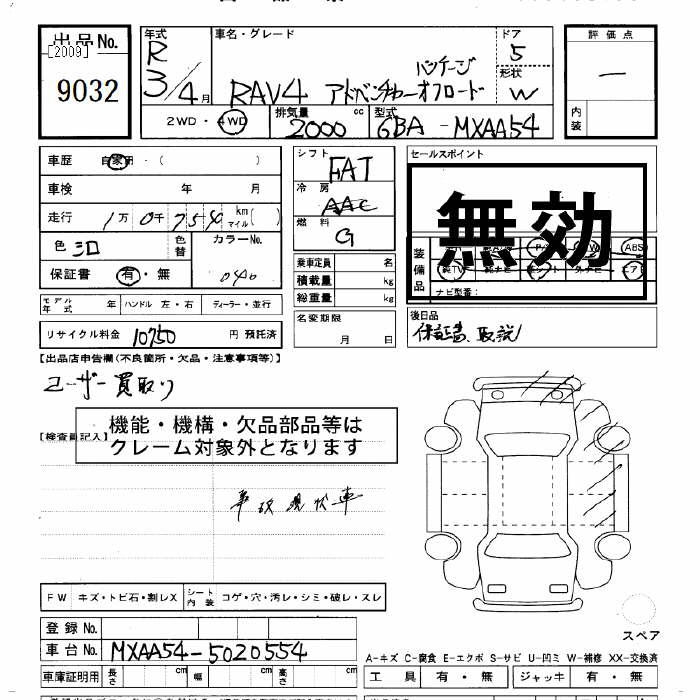 出品No.
[2009]
9032
年式 車名・グレード ドア 評価点
R 3/4月 RAV4 アドベンチャーオフロードパッケージ 5 形状 W ー
2WD・4WD 排気量 2000 cc 型式 6BA-MXAA54 内装
車歴 自家用・( )
車検 年 月
走行 1万0千754 km マイル( )
色 シロ 色替 カラーNo.
保証書 有・無 040
モデル年式 年 ハンドル 左・右 ディーラー・並行
リサイクル料金 10750 円 預託済
シフト FAT
冷房 AAC
燃料 G
乗車定員 名
積載量 kg
総重量 kg
名変期限
月 日
セールスポイント
無効
装備品 ABS
ナビ型番:
後日品
保証書、取説
【出品店申告欄(不良箇所・欠品・注意事項等)】
ユーザー買取り
【検査員記入】
機能・機構・欠品部品等は
クレーム対象外となります
事故現状車
FW キズ・トビ石・割レX シート内装 コゲ・穴・汚レ・シミ・破レ・スレ
スペア
登録No.
車台No. MXAA54-5020554
車庫証明用 長さ cm 幅 cm 高さ cm
A-キズ C-腐食 E-エクボ S-サビ U-凹ミ W-補修 XX-交換済
工具 有・無 ジャッキ 有・無